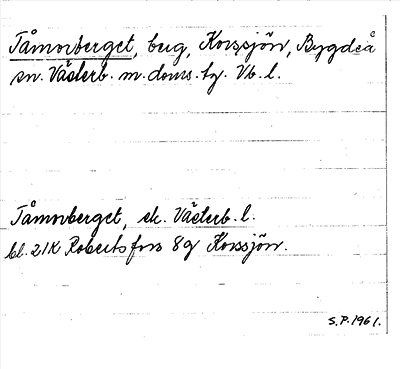 Tåmorberget, berg, Korssjön, Bygdeå
sn. Västerb. m. doms. tg. Vb. l.
Tåmorberget, ek. Västerb. l.
bl. 21K Robertsfors 8g Korssjön.
S.P. 1961.